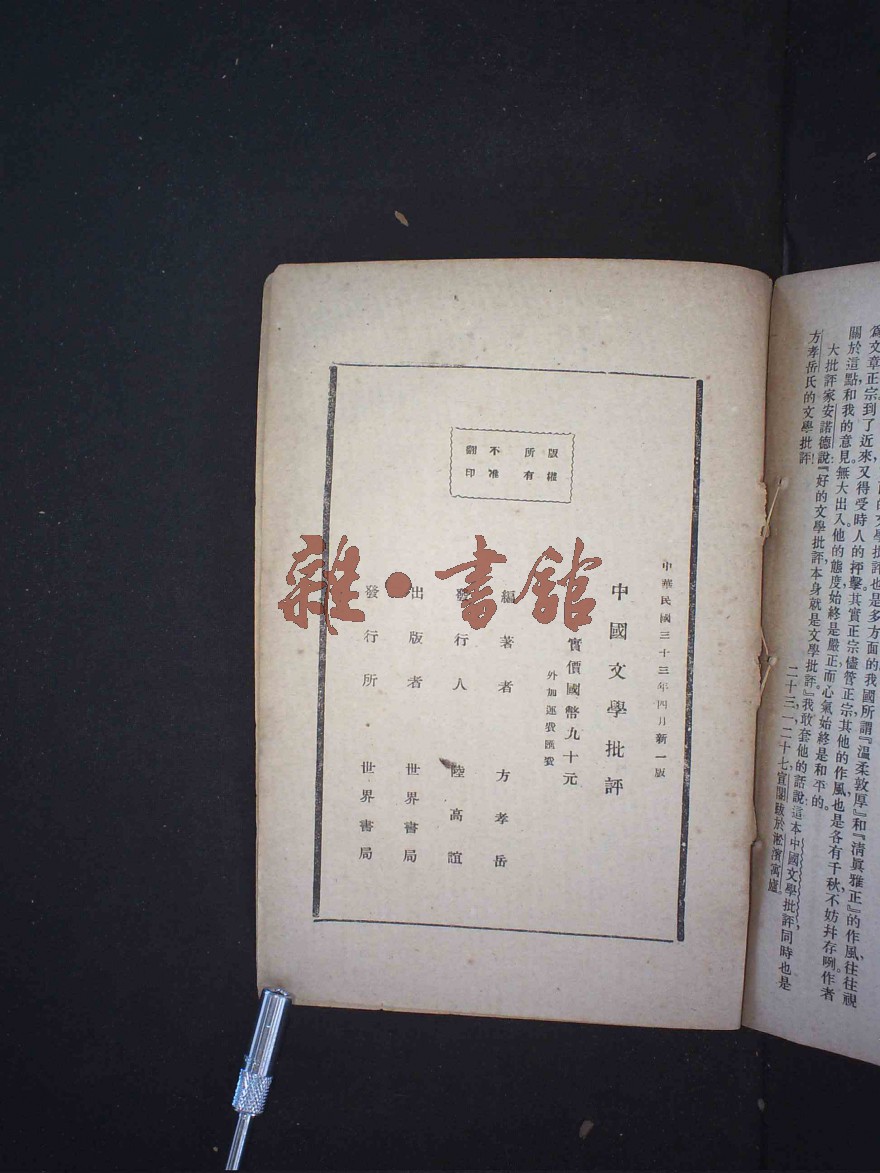 爲文章正宗。到了近來,又得受時人的抨擊。其實正宗儘管正宗,其他的作風也是各有千秋,不妨幷存咧。作者
關於這點,和我的意見無大出入。他的態度始終是嚴正,而心氣始終是和平的。
大批評家安諾德說:『好的文學批評,本身就是文學批評。』我敢套他的話說:這本中國文學批評,同時也是
方孝岳氏的文學批評!
二十三,一,二十七,宣閣跋於淞濱寓廬。
中華民國三十三年四月新一版
中國文學批評
實價國幣九十元
外加運費匯費
編著者 方孝岳
發行人 陸高誼
出版者 世界書局
發行所 世界書局
版權所有
不准翻印
雜·書館